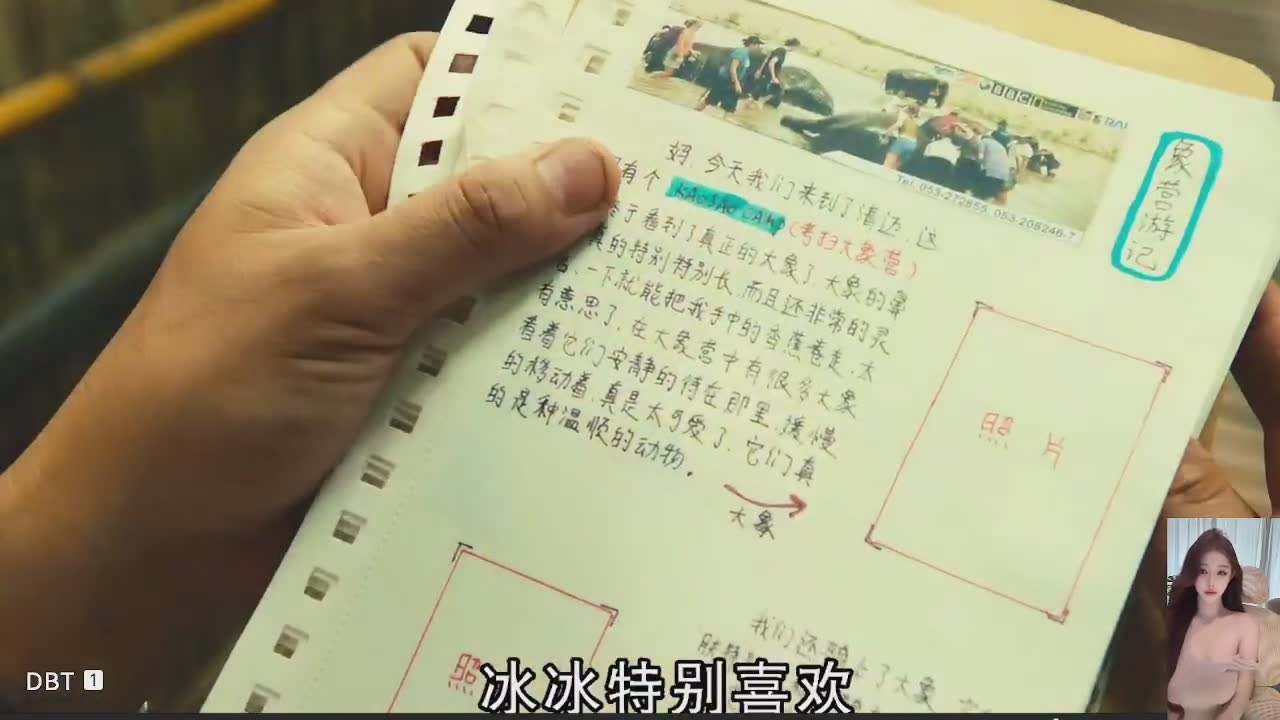 BBC
RAI
Tel. 053-272855, 053-208246-7
象营游记
妈，今天我们来到了清迈，这
有个KAOSAO CAMP（考扫大象营）
于看到了真正的大象了，大象的鼻
真的特别特别长，而且还非常的灵
一下就能把我手中的香蕉卷走，太
有意思了，在大象营中有很多大象
看着它们安静的待在那里，缓慢
的移动着，真是太可爱了，它们真
的是种温顺的动物。
大象
照片
照
我们还
了大象
冰冰特别喜欢
DBT 1